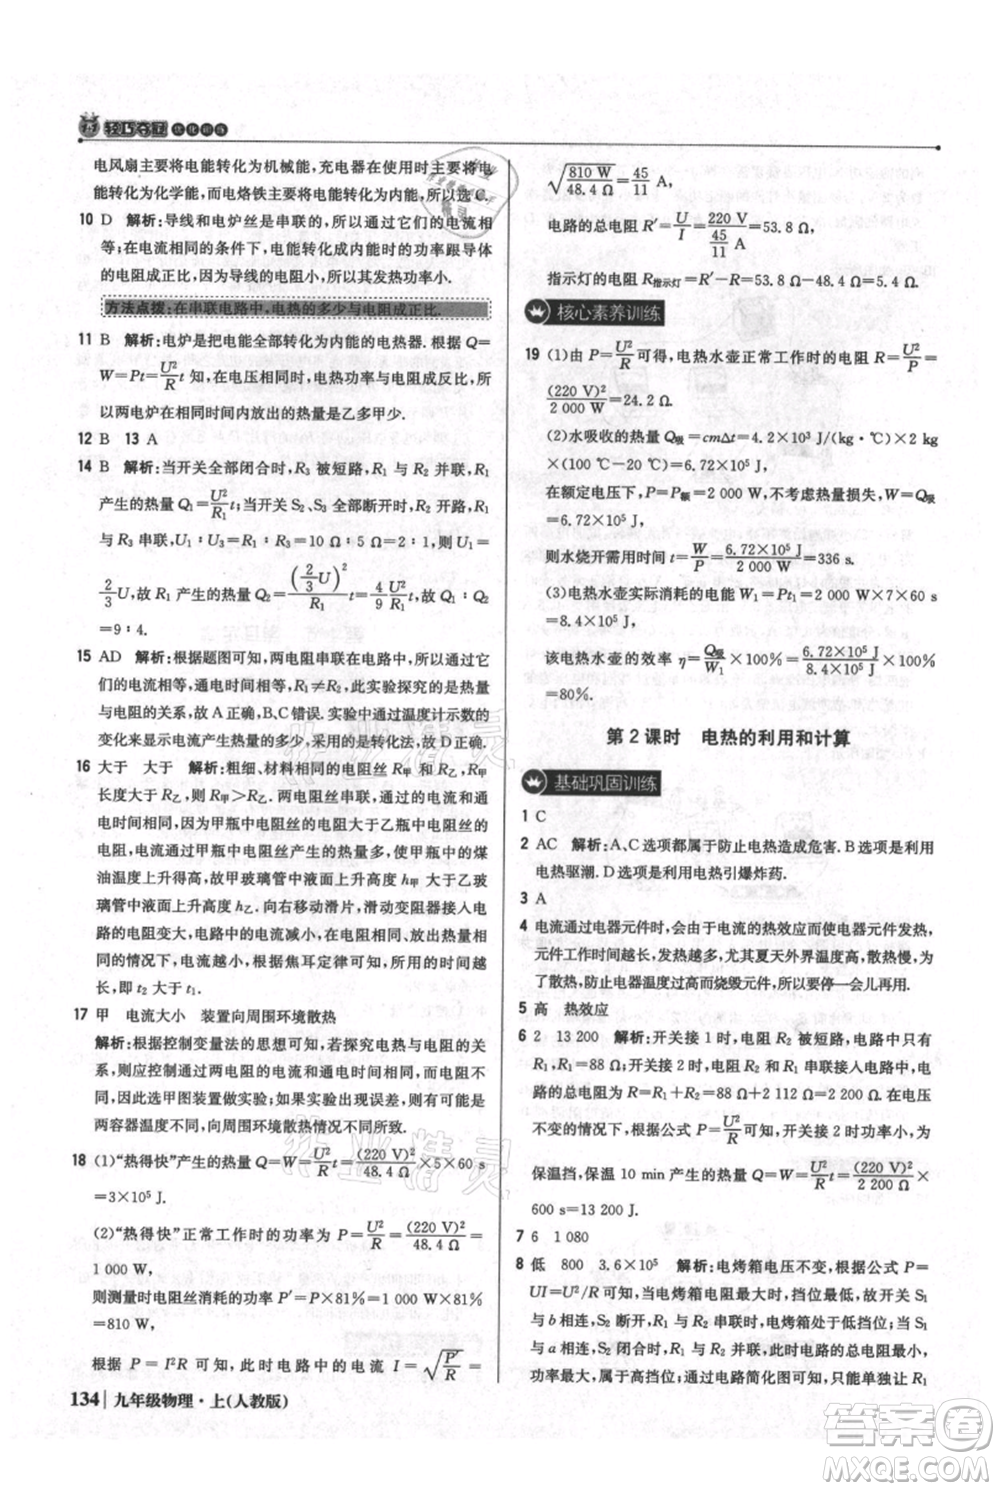 轻巧夺冠 优化训练
电风扇主要将电能转化为机械能,充电器在使用时主要将电
能转化为化学能,而电烙铁主要将电能转化为内能,所以选 C.
10 D 解析:导线和电炉丝是串联的,所以通过的电流相
等;在电流相等的条件下,电能转化成内能时的功率跟导体
的电阻成正比,因为导线的电阻小,所以其发热功率小.
方法点拨:在串联电路中,电热的多少与电阻成正比.
11 B 解析:电炉是把电能全部转化为内能的用电器.根据 Q=
W=Pt=U²/R t 知,在电压相同时,相同时间产生的热量与电阻成反比,
所以两电炉在相同时间内放出的热量是乙多甲少.
12 B 13 A
14 B 解析:当开关全部闭合时,R₃ 被短路,R₁ 与 R₂ 并联,R₁
产生的热量 Q₁=U²/R₁ t;当开关 S₂、S₃ 全部断开时,R₂ 开路,R₁
与 R₃ 串联,U₁∶U₃=R₁∶R₃=10 Ω∶5 Ω=2∶1,所以 U₁=
2/3 U,故 R₁ 产生的热量 Q₂=(2/3 U)²/R₁ t=4/9 × U²/R₁ t,则 Q₁∶Q₂
=9∶4.
15 AD 解析:根据题图可知,两电阻串联在电路中,所以通过它
们的电流相等,通电时间相等,R₁≠R₂,此实验探究的是热量
与电阻的关系,故 A 正确,B、C 错误.实验中通过温度计示数的
变化来显示电流产生热量的多少,采用的是转换法,故 D 正确.
16 大于 大于 解析:粗细、材料相同的电阻丝 R甲 和 R乙,R甲
长度大于 R乙,则 R甲>R乙.两电阻丝串联,通过的电流相同,
通电时间相同,因为甲瓶中电阻丝的电阻大于乙瓶中电阻丝的
电阻,因此,甲瓶中的电阻丝产生的热量多,所以甲瓶中的煤
油温度上升得高,故甲玻璃管中液面上升高度 h甲 大于乙玻
璃管中液面上升高度 h乙.向右移动滑片,滑动变阻器接入电
路中的电阻变大,电路中的电流减小,在相同的时间内,电阻
丝产生的热量变少,要使电阻丝产生相同的热量,放出的热量
一定,电流减小,根据焦耳定律可知,所用的时间将延
长,即 t₂ 大于 t₁.
17 甲 电流大小 装置向周围环境散热
解析:根据控制变量法的思想可知,若探究电热与电阻的关
系,则应控制通过两电阻的电流和通电时间相同,而改变电
阻,因此选甲图装置做实验;如果实验出现误差,有可能是两
容器温度差异大小不同,向周围环境散热情况不同所致.
18 (1)“热得快”产生的热量 Q=W=U²/R t=(220 V)²/48.4 Ω×5×60 s
=3×10⁵ J.
(2)“热得快”正常工作时的功率 P=U²/R=(220 V)²/48.4 Ω=1 000 W,
则测量时电阻丝消耗的功率 P′=P×81%=1 000 W×81%
=810 W,
根据 P=I²R 可知,此时电路中的电流 I=√(P′/R)=
√(810 W/48.4 Ω)=45/11 A,
电路的总电阻 R′=U/I=220 V/(45/11 A)=53.8 Ω,
指示灯的电阻 R指示灯=R′−R=53.8 Ω−48.4 Ω=5.4 Ω.
核心素养训练
19 (1)由 P=U²/R 可得,电热水壶正常工作时的电阻 R=U²/P=
(220 V)²/2 000 W=24.2 Ω.
(2)水吸收的热量 Q吸=cmΔt=4.2×10³ J/(kg·℃)×2 kg×
(100℃−20℃)=6.72×10⁵ J,
在额定电压下,P=P额=2 000 W,不考虑热量损失,W=Q吸
=6.72×10⁵ J,
则水烧开需用时间 t=W/P=6.72×10⁵ J/2 000 W=336 s.
(3)电热水壶实际消耗的电能 W₁=Pt₁=2 000 W×7×60 s
=8.4×10⁵ J,
该电热水壶的效率 η=Q吸/W₁×100%=6.72×10⁵ J/8.4×10⁵ J×100%
=80%.
第 2 课时 电热的利用和计算
基础巩固训练
1 C
2 AC 解析:A、C 选项都属于防止电热造成危害.B 选项是利用
电热驱潮.D 选项是利用电热引爆炸药.
3 A
4 电流通过电器元件时,会由于电流的热效应而使电器元件发热,
元件工作时间越长,发热越多,尤其夏天外界温度高,散热慢,
为了散热,防止电器温度过高而烧毁元件,所以要停一会儿再用.
5 高 热效应
6 2 13 200 解析:开关接 1 时,电阻 R₂ 被短路,电路中只有
R₁,R₁=88 Ω;开关接 2 时,电阻 R₂ 与 R₁ 串联接入电路中,电
路的总电阻是 R=R₁+R₂=88 Ω+2 112 Ω=2 200 Ω,在电压
不变的情况下,根据公式 P=U²/R 可知,电阻越大,功率越小,为
保温挡,保温 10 min 产生的热量 Q=W=U²/R t=(220 V)²/2 200 Ω×
600 s=13 200 J.
7 6 1 080
8 低 800 3.6×10⁵ 解析:电烤箱电压不变,根据公式 P=
UI=U²/R 可知,当电烤箱的电阻最大时,挡位最低,当 S₁
与 b 相连,S₂ 断开,R₁ 与 R₂ 串联,电烤箱处于低温挡;当 S₁
与 a 相连,S₂ 闭合时,R₁ 与 R₂ 并联,总电阻最小,电烤箱的功
率最大,处于高温挡.通过电路简化可知,当 S₁ 接 a,S₂ 闭合
134 九年级物理·上(人教版)
作业精灵
作业精灵
答案圈
MXQE.COM